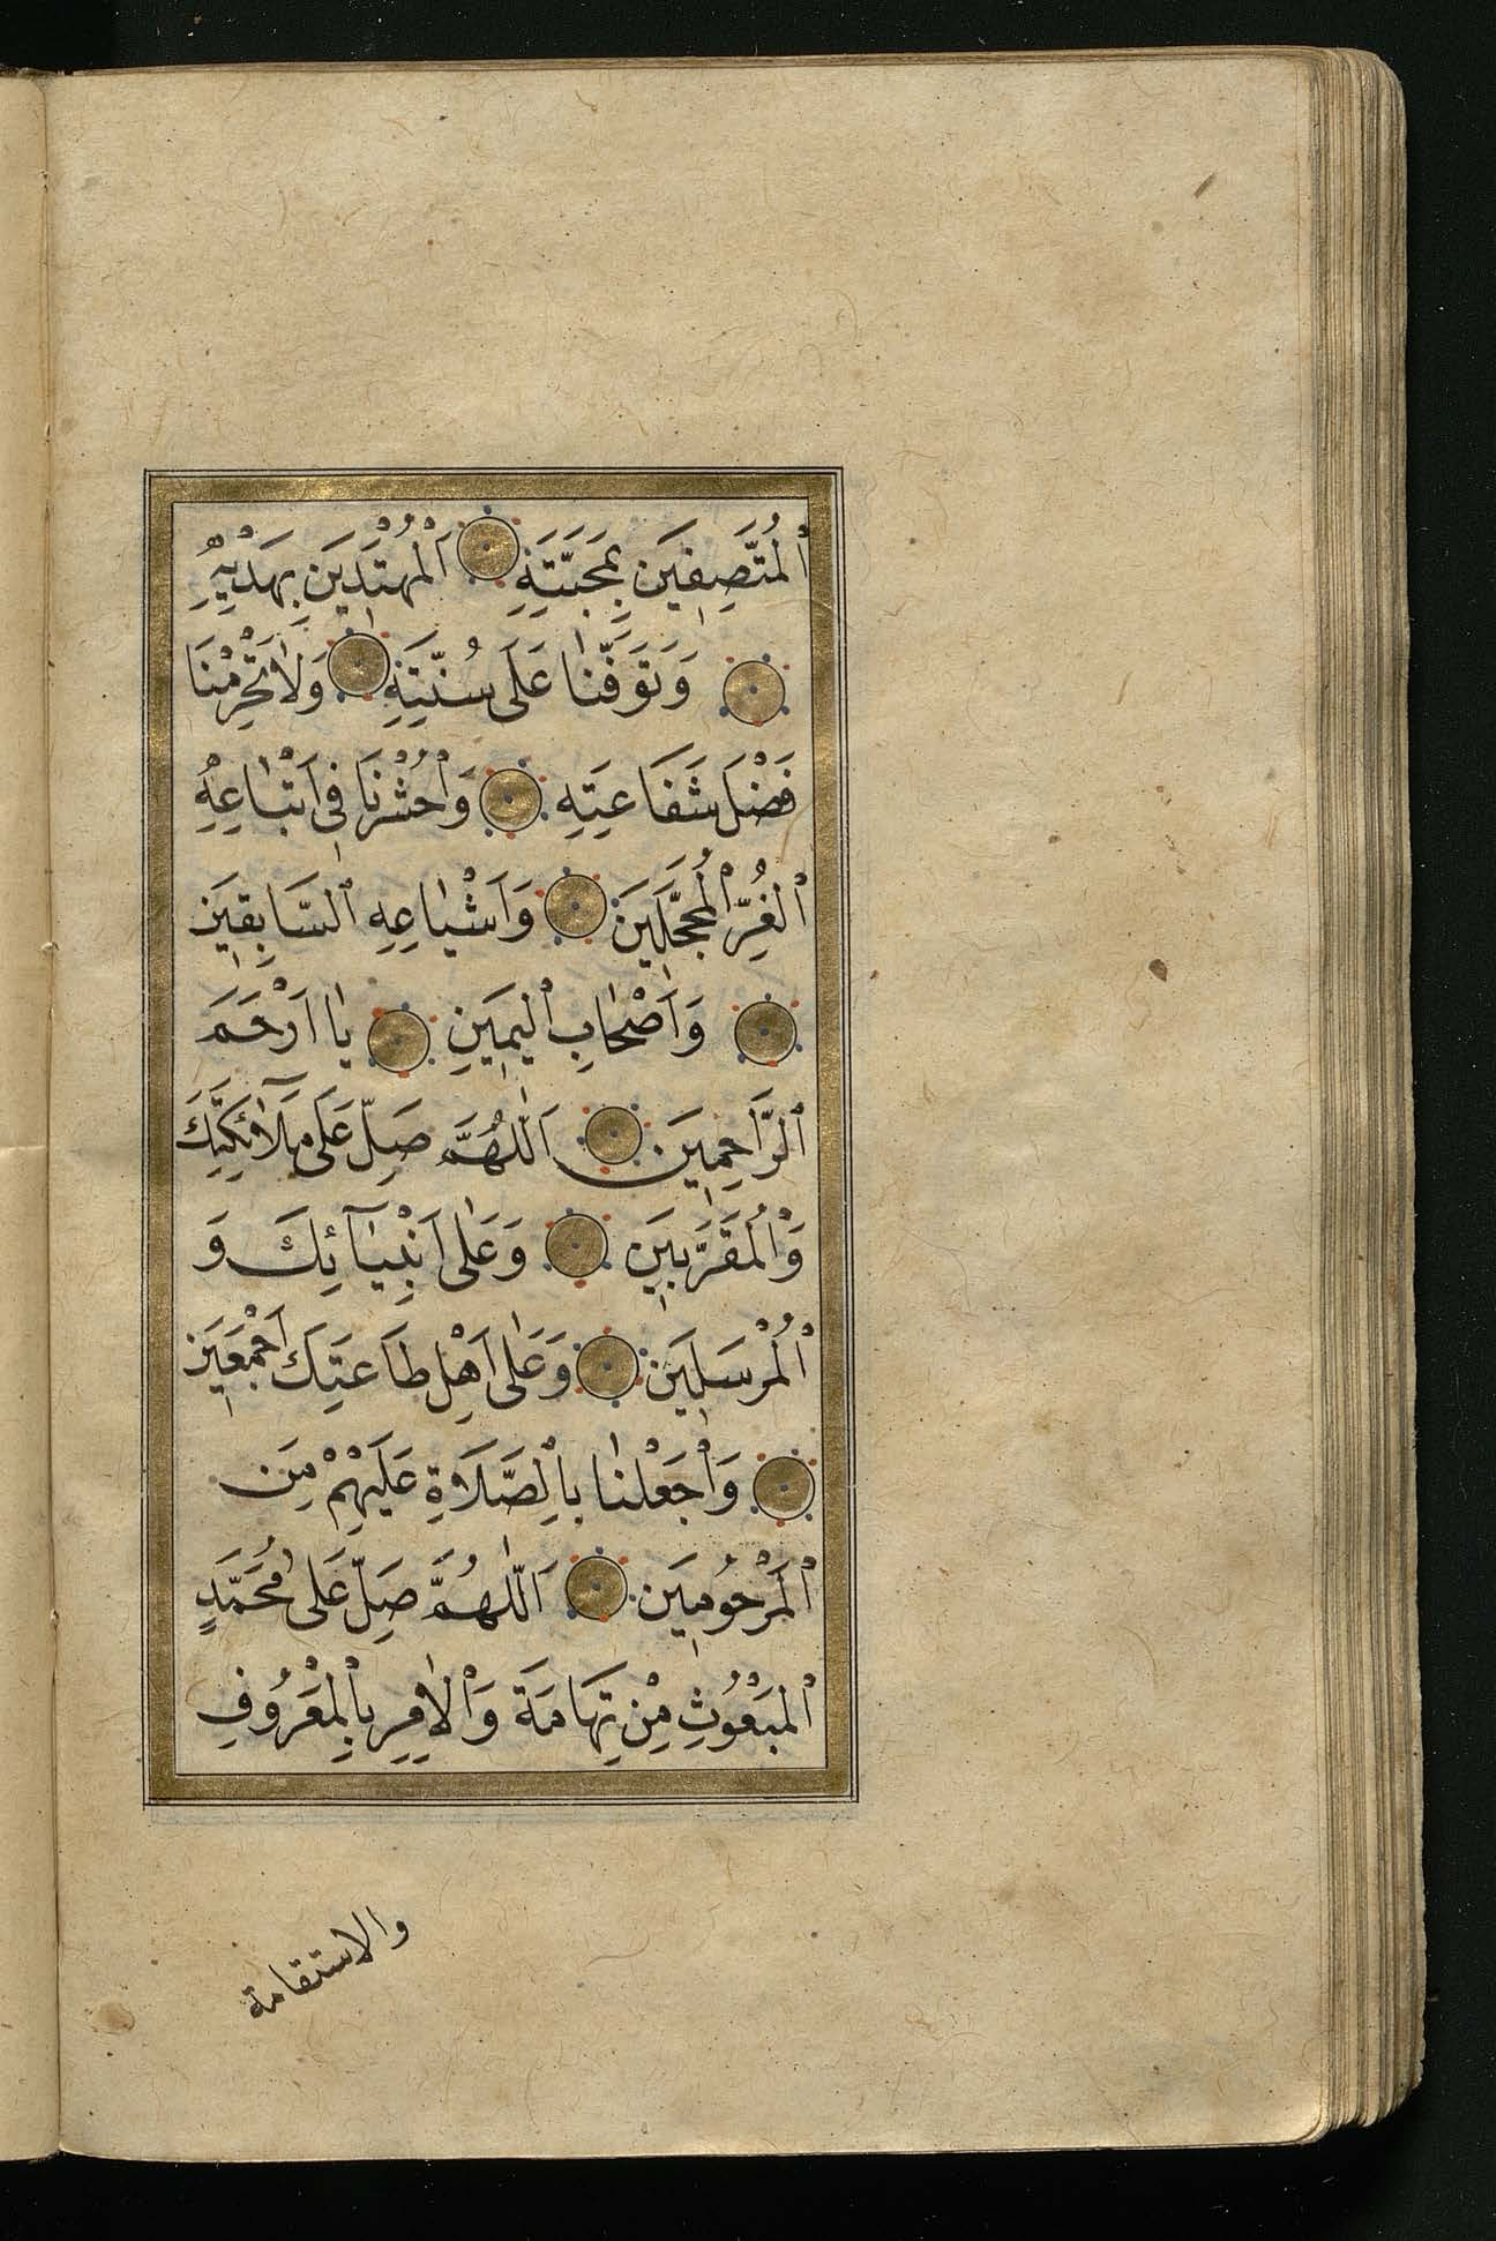 ٱلْمُتَّصِفِينَ بِمَحَبَّتِهِ اَلْمُهْتَدِينَ بِهَدْيِهِ
وَتَوَفَّنَا عَلَى سُنَّتِهِ وَلَا تَحْرِمْنَا
فَضْلَ شَفَاعَتِهِ وَاحْشُرْنَا فِى اَتْبَاعِهِ
ٱلْغُرِّ ٱلْمُحَجَّلِينَ وَاَشْيَاعِهِ ٱلسَّابِقِينَ
وَاَصْحَابِ ٱلْيَمِينِ يَا اَرْحَمَ
ٱلرَّاحِمِينَ اَللّٰهُمَّ صَلِّ عَلَى مَلَآئِكَتِكَ
وَٱلْمُقَرَّبِينَ وَعَلَى اَنْبِيَآئِكَ وَ
ٱلْمُرْسَلِينَ وَعَلَى اَهْلِ طَاعَتِكَ اَجْمَعِينَ
وَاجْعَلْنَا بِالصَّلَاةِ عَلَيْهِمْ مِنَ
ٱلْمَرْحُومِينَ اَللّٰهُمَّ صَلِّ عَلَى مُحَمَّدٍ
ٱلْمَبْعُوثِ مِنْ تِهَامَةَ وَٱلْاٰمِرِ بِالْمَعْرُوفِ
والاستقامة